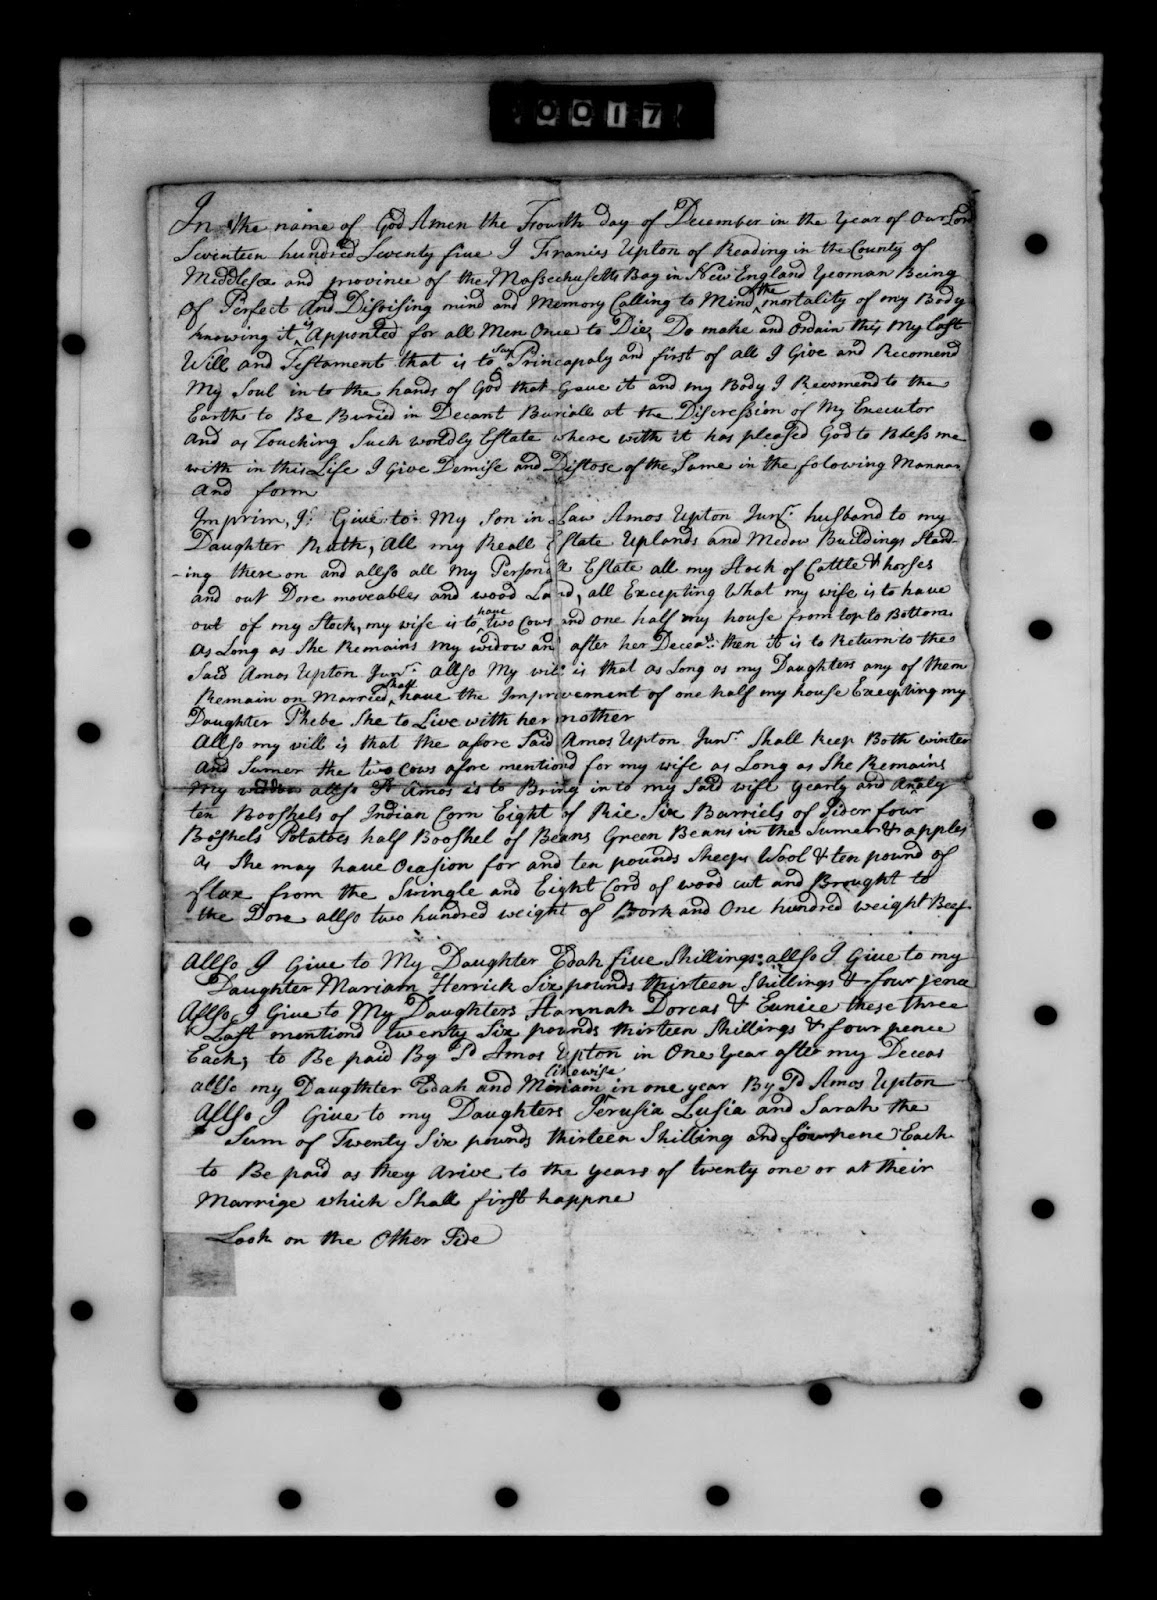 0017
In the name of God Amen the Fourth day of December in the Year of Our Lord
Seventeen hundred Seventy five I Francis Upton of Reading in the County of
Middlesex and province of the Massechusetts Bay in New England Yeoman Being
Of Perfect and Disposing mind and Memory Calling to Mind the mortality of my Body
knowing it is Apponted for all Men Once to Die, Do make and Ordain this My Last
Will and Testament that is to Say Princapaly and first of all I Give and Recomend
My Soul in to the hands of God that Gave it and my Body I Recomend to the
Earth to Be Buried in Decant Buriall at the Discression of My Executor
And as Touching Such worldly Estate where with it has pleased God to Bless me
with in this Life I Give Demise and Distose of the Same in the folowing Mannar
And form
Imprim, Is Give to My Son in Law Amos Upton Junr. husband to my
Daughter Ruth, All my Reall Estate Uplands and Medow Buildings Stand-
-ing there on and allso all My Personal Estate all my Stock of Cattle & horses
and out Dore moveables and wood Land, all Excepting What my wife is to have
out of my Stock, my wife is to have two Cows and one half my house from top to Bottom
as Long as She Remains My widow and after her Deceas. then it is to Return to the
Said Amos Upton Junr. Allso My will is that as Long as my Daughters any of them
Remain on Married Shall have the Improvement of one half my house Excepting my
Daughter Phebe She to Live with her mother
Allso my will is that the afore Said Amos Upton Junr. Shall keep Both winter
And Sumer the two Cows afore mentiond for my wife as Long as She Remains
My widow allso Sd Amos is to Bring in to my Said wife yearly and Analy
ten Booshels of Indian Corn Eight of Rie Six Barriels of Sider four
Boshels Potatoes half Booshel of Beans Green Beans in the Sumer & apples
As She may have Ocasion for and ten pounds Sheeps Wool & ten pound of
flax from the Swingle and Eight Cord of wood cut and Brought to
the Dore allso two hundred weight of Pork and One hundred weight Beef
Allso I Give to My Daughter Edah five Shillings: allso I Give to my
Daughter Mariam Herrick Six pounds thirteen Shillings & four pence
Allso I Give to My Daughters Hannah Dorcas & Eunice these three
Last mentiond twenty Six pounds thirteen Shillings & four pence
Each, to Be paid By Sd Amos Upton in One Year after my Deceas
likewise
allso my Daugthter Edah and Miriam in one year By Sd Amos Upton
Allso I Give to my Daughters Jerusia Lusia and Sarah the
Sum of Twenty Six pounds thirteen Shilling and fourpene Each
to Be paid as they Arive to the years of twenty one or at their
Marrige which Shall first happne
Look on the Other Side